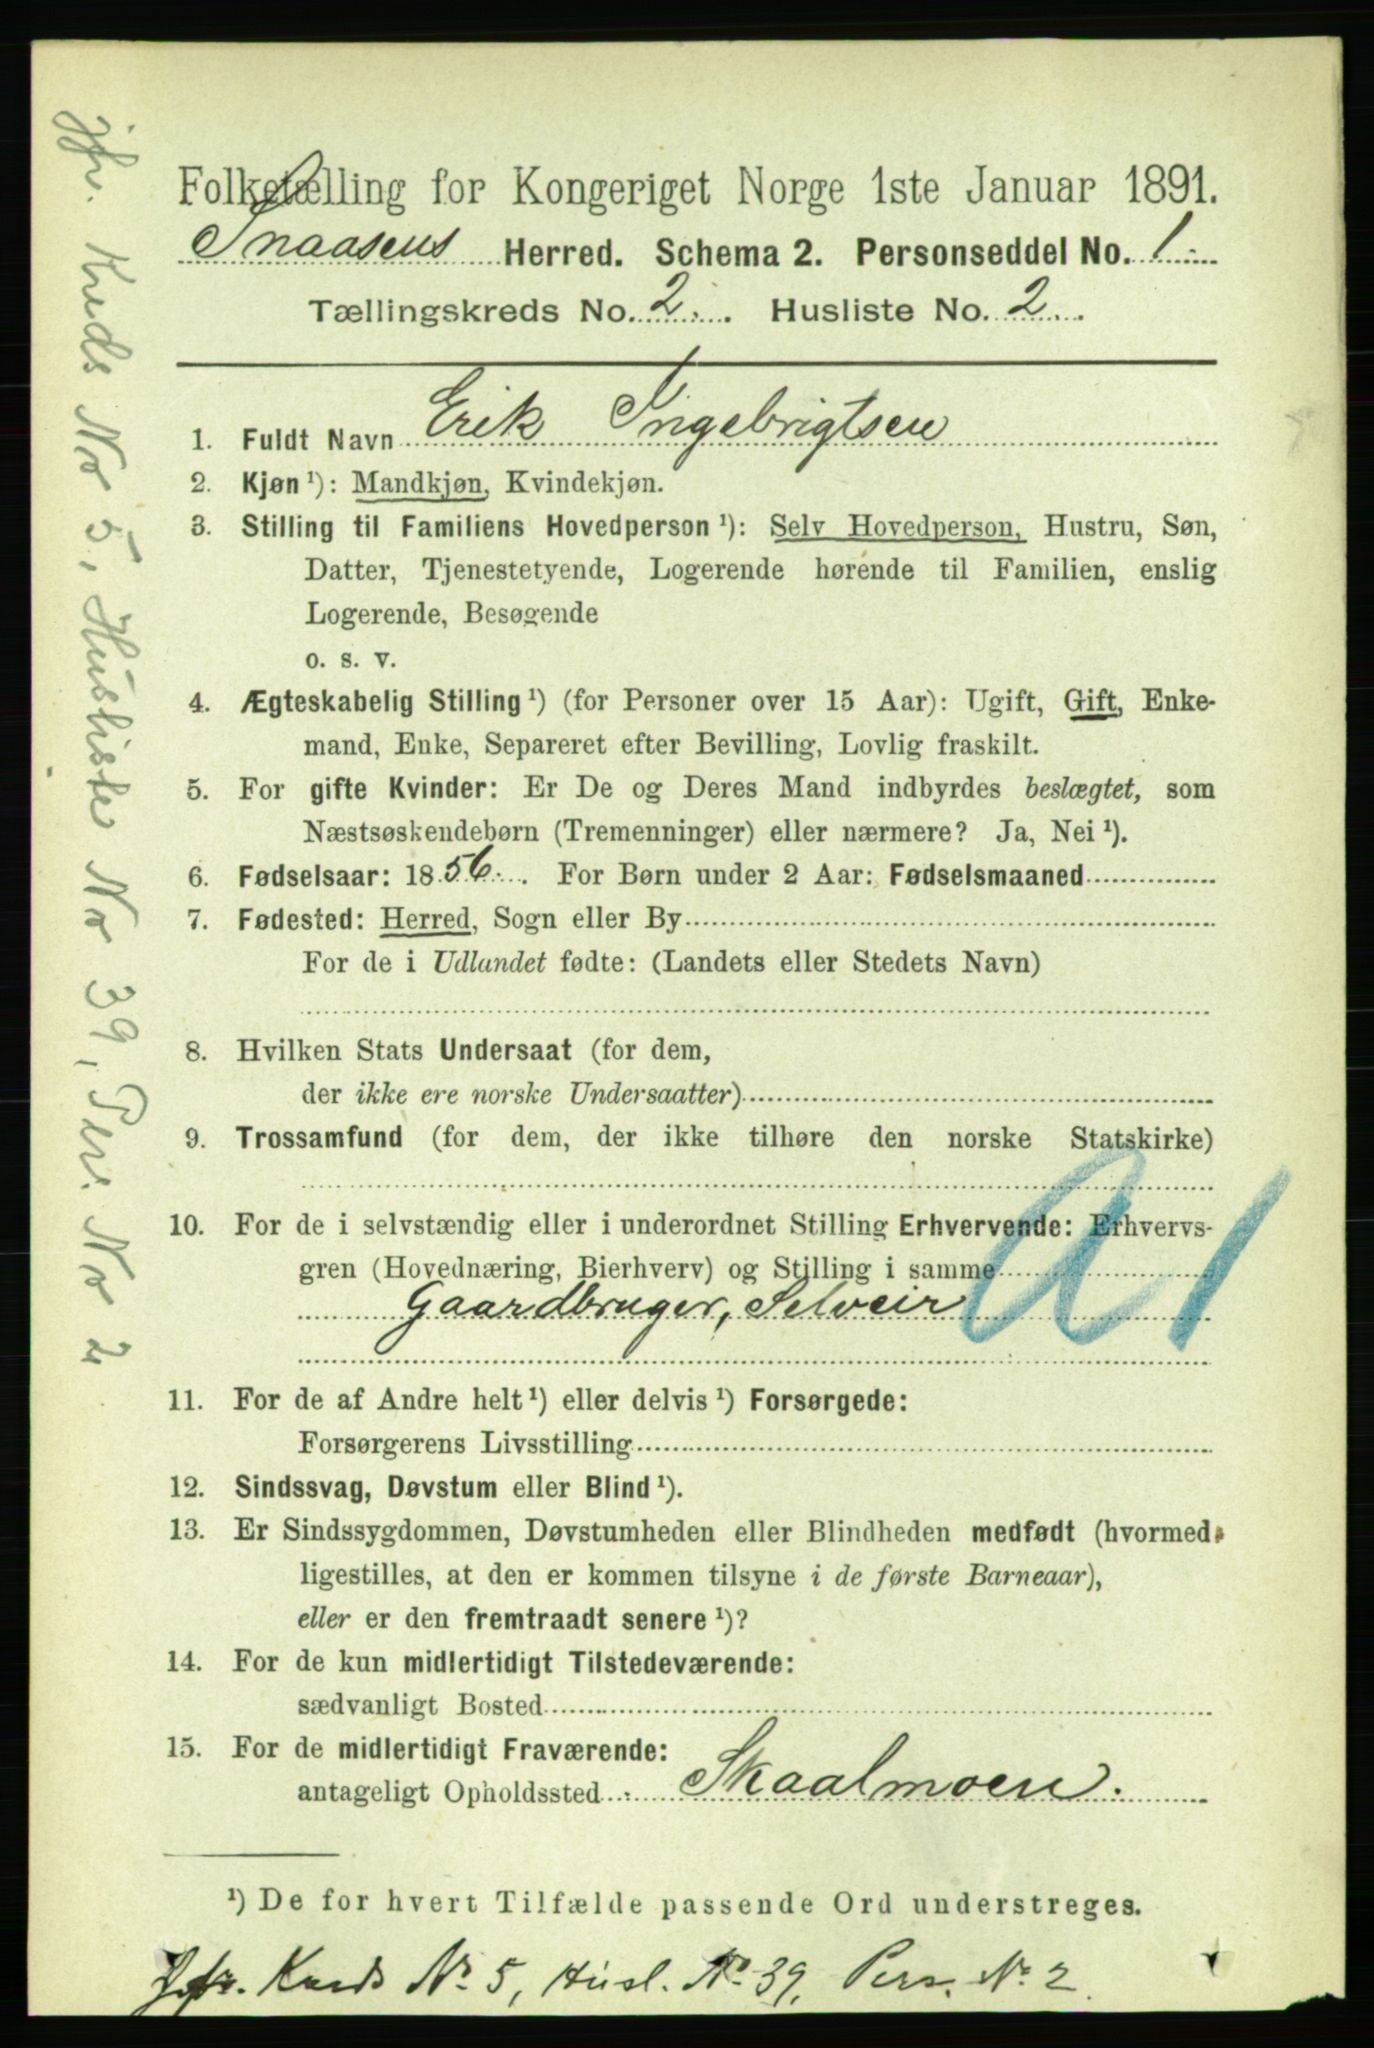 Folketælling for Kongeriget Norge 1ste Januar 1891.
Snaasens Herred. Schema 2. Personseddel No. 1.
Tællingskreds No. 2. Husliste No. 2.
1. Fuldt Navn Erik Ingebrigtsen
2. Kjøn ¹): Mandkjøn, Kvindekjøn.
3. Stilling til Familiens Hovedperson ¹): Selv Hovedperson, Hustru, Søn,
Datter, Tjenestetyende, Logerende hørende til Familien, enslig
Logerende, Besøgende
o. s. v.
4. Ægteskabelig Stilling ¹) (for Personer over 15 Aar): Ugift, Gift, Enke-
mand, Enke, Separeret efter Bevilling, Lovlig fraskilt.
5. For gifte Kvinder: Er De og Deres Mand indbyrdes beslægtet, som
Næstsøskendebørn (Tremenninger) eller nærmere? Ja, Nei ¹).
6. Fødselsaar: 1856. For Børn under 2 Aar: Fødselsmaaned
7. Fødested: Herred, Sogn eller By
For de i Udlandet fødte: (Landets eller Stedets Navn)
8. Hvilken Stats Undersaat (for dem,
der ikke ere norske Undersaatter)
9. Trossamfund (for dem, der ikke tilhøre den norske Statskirke)
10. For de i selvstændig eller i underordnet Stilling Erhvervende: Erhvervs-
gren (Hovednæring, Bierhverv) og Stilling i samme
Gaardbruger, Selveir
A1
11. For de af Andre helt ¹) eller delvis ¹) Forsørgede:
Forsørgerens Livsstilling
12. Sindssvag, Døvstum eller Blind ¹).
13. Er Sindssygdommen, Døvstumheden eller Blindheden medfødt (hvormed
ligestilles, at den er kommen tilsyne i de første Barneaar),
eller er den fremtraadt senere ¹)?
14. For de kun midlertidigt Tilstedeværende:
sædvanligt Bosted
15. For de midlertidigt Fraværende:
antageligt Opholdssted Skaalmoen.
¹) De for hvert Tilfælde passende Ord understreges.
Jfr. Kreds No 5, Husl. No 39, Pers. No 2.
jfr. Kreds No 5, Husliste No 39, Pers. No 2